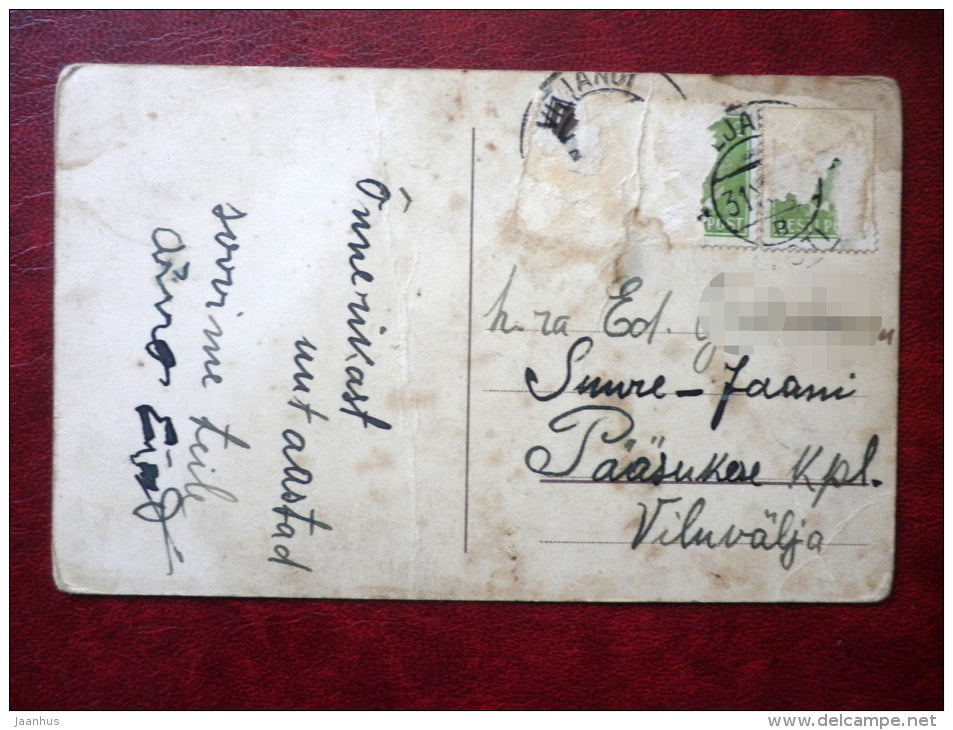 Õnnerikast
uut aastad
soovime teile
JANDI
LJA
31
B
POST
EESTI
h. ra Ed.
Suure-Jaani
Pääsukese Kpl.
Viluvälja
jaanhus
www.delcampe.net